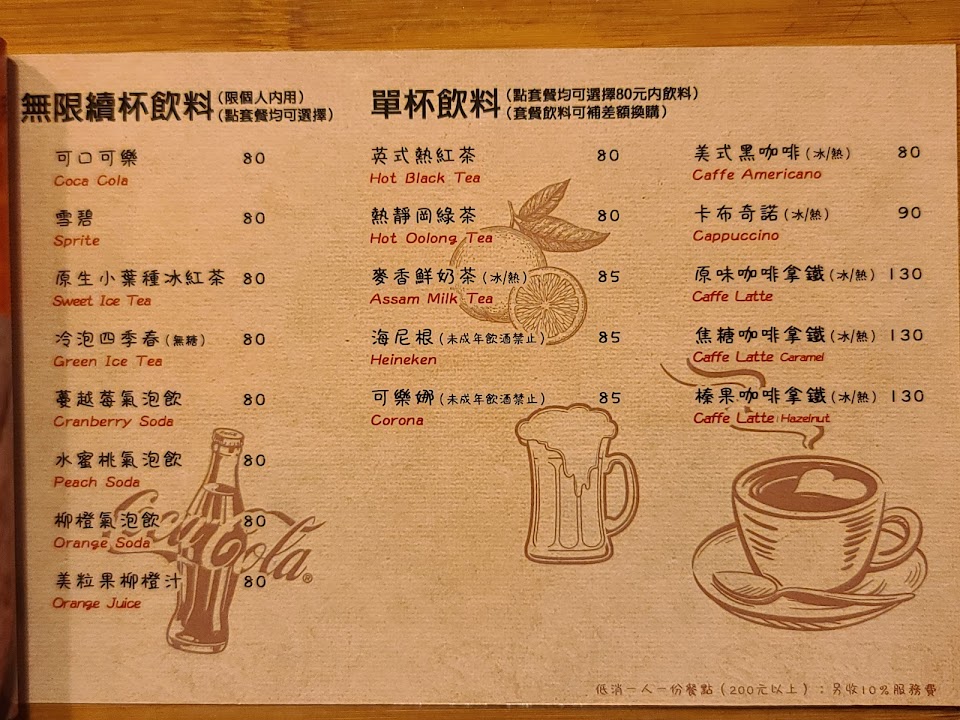 無限續杯飲料(限個人內用)
(點套餐均可選擇)
可口可樂 80
Coca Cola
雪碧 80
Sprite
原生小葉種冰紅茶 80
Sweet Ice Tea
冷泡四季春(無糖) 80
Green Ice Tea
蔓越莓氣泡飲 80
Cranberry Soda
水蜜桃氣泡飲 80
Peach Soda
柳橙氣泡飲 80
Orange Soda
美粒果柳橙汁 80
Orange Juice
Coca Cola®
單杯飲料(點套餐均可選擇80元內飲料)
(套餐飲料可補差額換購)
英式熱紅茶 80
Hot Black Tea
熱靜岡綠茶 80
Hot Oolong Tea
麥香鮮奶茶(冰/熱) 85
Assam Milk Tea
海尼根(未成年飲酒禁止) 85
Heineken
可樂娜(未成年飲酒禁止) 85
Corona
美式黑咖啡(冰/熱) 80
Caffe Americano
卡布奇諾(冰/熱) 90
Cappuccino
原味咖啡拿鐵(冰/熱) 130
Caffe Latte
焦糖咖啡拿鐵(冰/熱) 130
Caffe Latte Caramel
榛果咖啡拿鐵(冰/熱) 130
Caffe Latte Hazelnut
低消一人一份餐點(200元以上):另收10%服務費